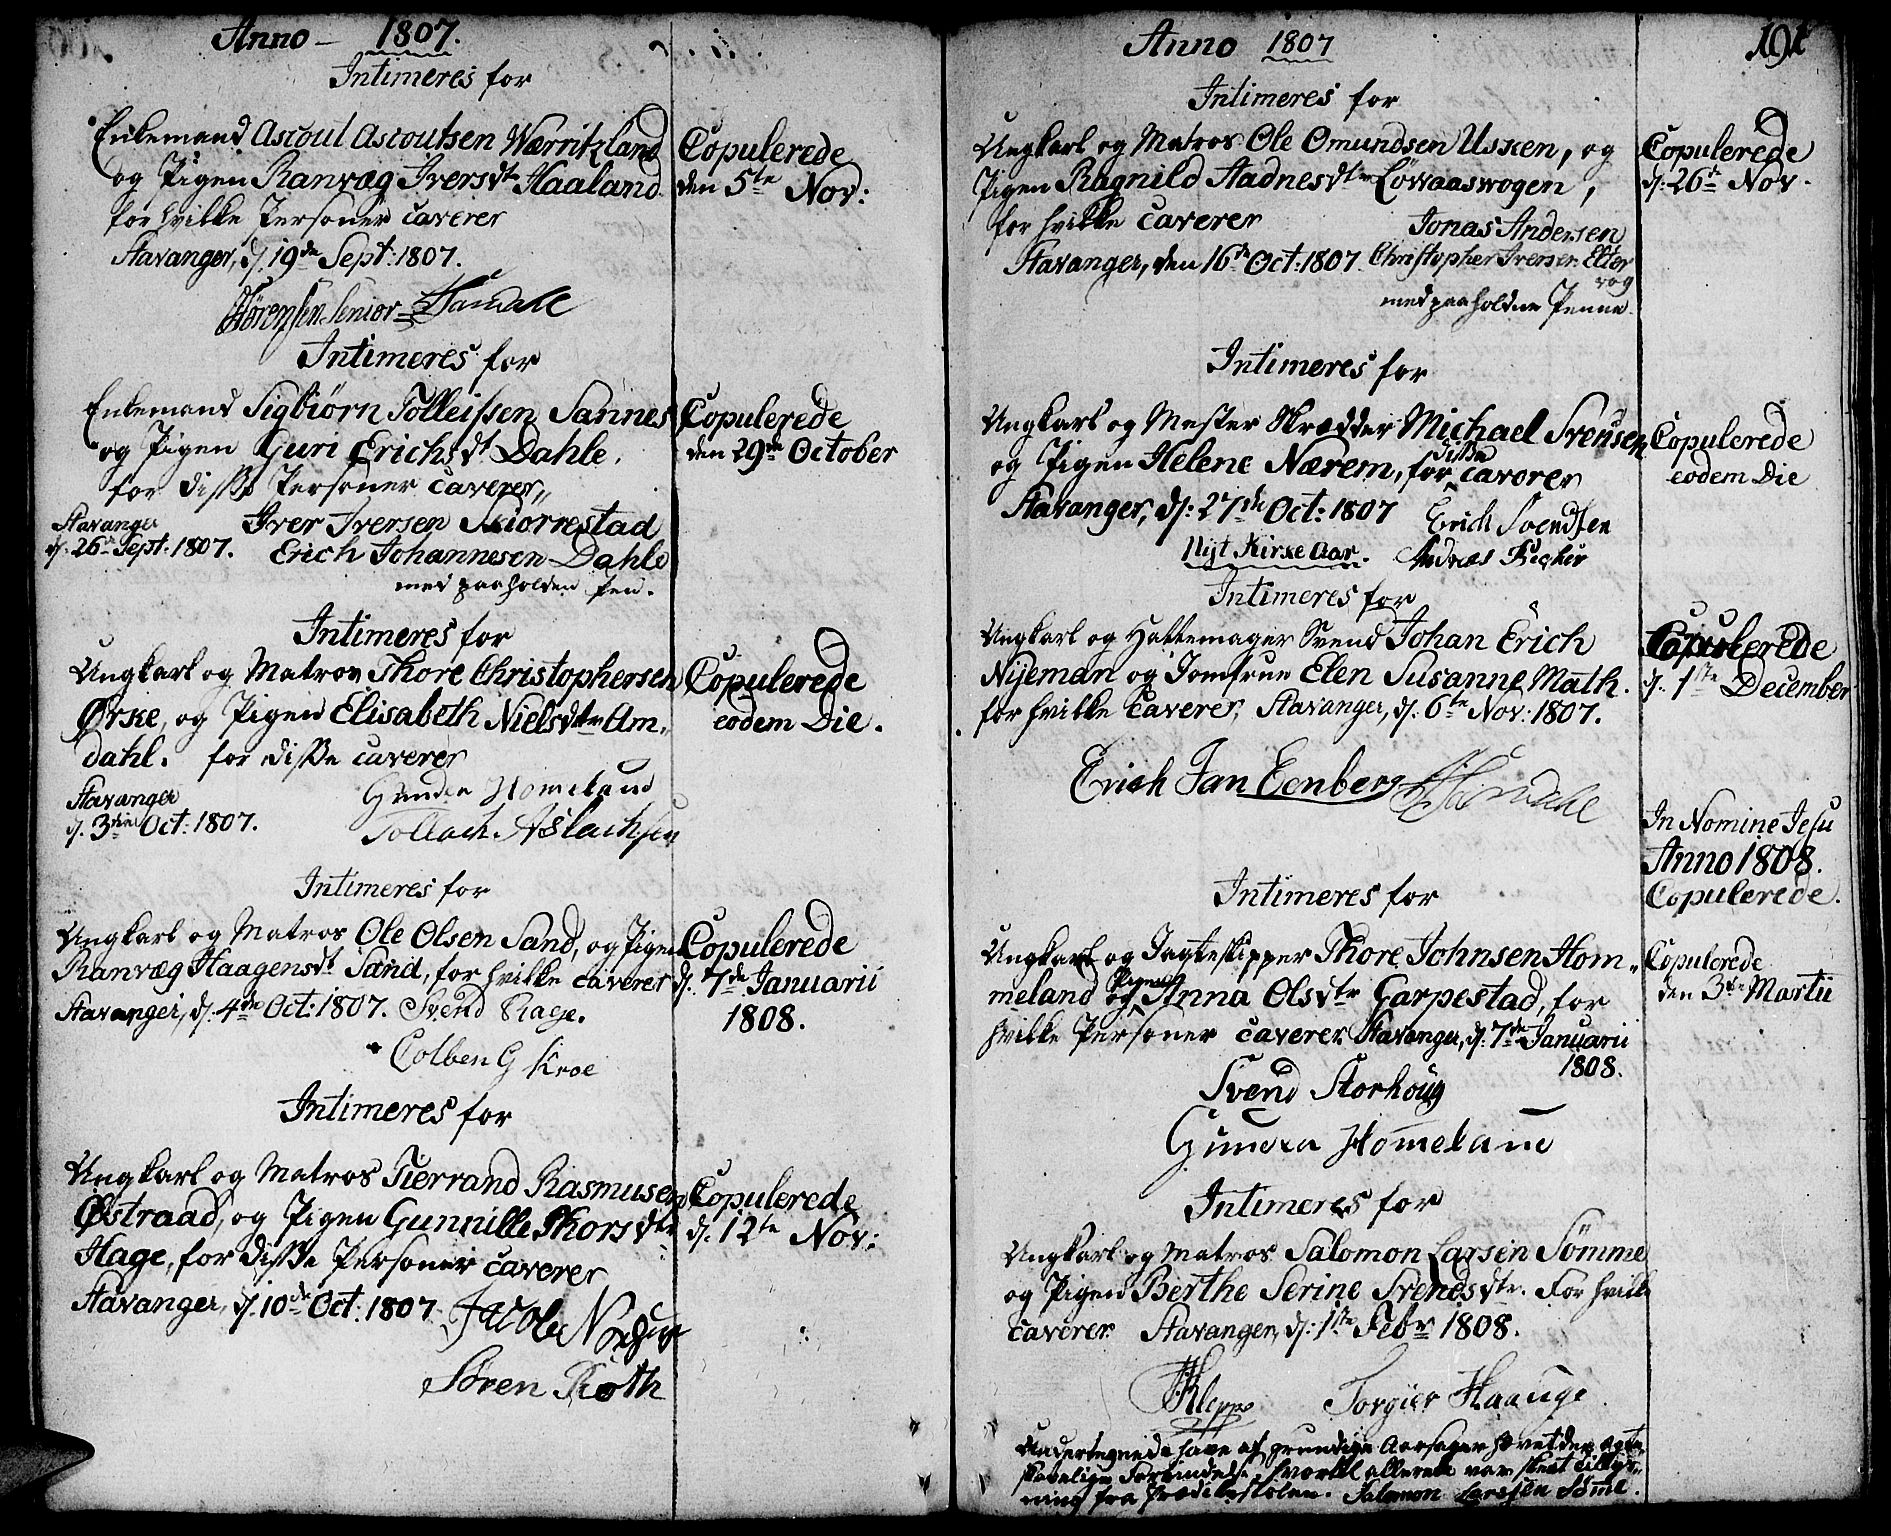 Anno – 1807.
Intimeres for
Enkemand Ascoul Ascoulsen Wærritzland
og Pigen Ranvæg Ivers dtr Haaland
for hvilke Personer caverer
Stavanger, d. 19de Sept: 1807.
Sörensen Senior
Copulerede
den 5te Nov:
Intimeres for
Enkemand Sigbiörn Tolleifsen Sannes
og Pigen Guri Erichs dt Dahle.
for disse Personer caverer,,
Stavanger
d. 26de Sept: 1807.
Iver Iversen Skiorrestad
Erich Johannesen Dahle
med paaholden Pen.
Copulerede
den 29de October
Intimeres for
Ungkarl og Matros Thore Christophersen
Ørke, og Pigen Elisabeth Niels dtr Am,,
dahl. for disse caverer
Stavanger
d. 3die Oct: 1807.
Gunder Homeland
Tollach Aslachsen
Copulerede
eodem Die.
Intimeres for
Ungkarl og Matros Ole Olsen Sand, og Pigen
Ranvæg Haagens dt Sand, for hvilke caverer
Stavanger, d. 4de Oct: 1807. Svend Rage.
Colben G Kroe
Copulerede
d. 7de Januarii
1808.
Intimeres for
Ungkarl og Matros Tierrand Rasmusen
Østraad, og Pigen Gunnille Thors dtr
Hage, for disse Personer caverer
Stavanger, d. 10de Oct: 1807
Jacob
Sören Roth
Copulerede
d. 12te Nov:
Anno 1807
191
Intimeres for
Ungkarl og Matros Ole Omundsen Usken, og
Pigen Ragnild Hadnes dtr Löwaaswogen,
for hvilke caverer
Jonas Andersen
Stavanger, den 16de Oct: 1807. Christopher Iversen Elter
vog
med paaholden Penne.
Copulerede
d: 26de Nov.
Intimeres for
Ungkarl og Mester Skrædder Michael Svensen
og Pigen Helene Nærem, for disse caverer
Stavanger, d: 27de Oct: 1807
Erich Svendsen
Nyt Kirke Aar. Andreas
Copulerede
eodem Die
Intimeres for
Ungkarl og Hattemager Svend Johan Erich
Nijeman og Jomfrue Elen Susanne Math.
for hvilke caverer, Stavanger, d. 6te Nov: 1807.
Erich Jan Eenberg
Copulerede
d. 1ste December
In Nomine Jesu
Anno 1808.
Copulerede.
Intimeres for
Ungkarl og Jagteskipper Thore Johnsen Hom,,
meland og Pigen Anna Ols dtr Garpestad, for
hvilke Personer caverer. Stavanger, d. 7de Januarii
1808.
Svend Storhoug
Gunder Homeland
Copulerede
den 3die Martii
Intimeres for
Ungkarl og Matros Salomon Larsen Sömme
og Pigen Berthe Serine Svends dtr. For hvilke
caverer Stavanger, d: 1ste Febr 1808.
Kleppe Torgier Haauge.
Undertegnede have af grundige Aarsager hævet den ægte,,
skabelige Forbindelse, hvortil allerede var skeet Tillys,,
ning fra Prædikestolen. Salomon Larssen Sömme.